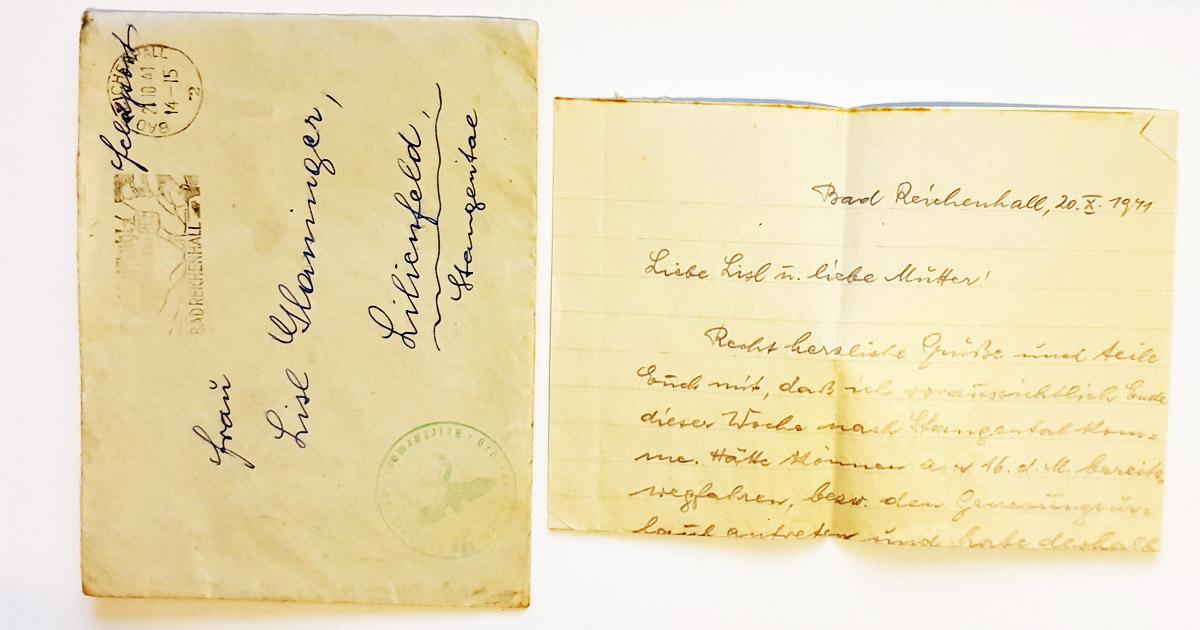 Feldpost
BAD REICHENHALL
21 10 41
14-15
2
BAD REICHENHALL
Frau
Lisl Glaninger,
Lilienfeld,
Stangental
Bad Reichenhall, 20. X. 1941
Liebe Lisl u. liebe Mutter!
Recht herzliche Grüße und teile
Euch mit, daß ich voraussichtlich Ende
dieser Woche nach Stangental kom-
me. Hätte können am 16. d. M. bereits
wegfahren, bezw. den Genesungsur-
laub antreten und habe deshalb